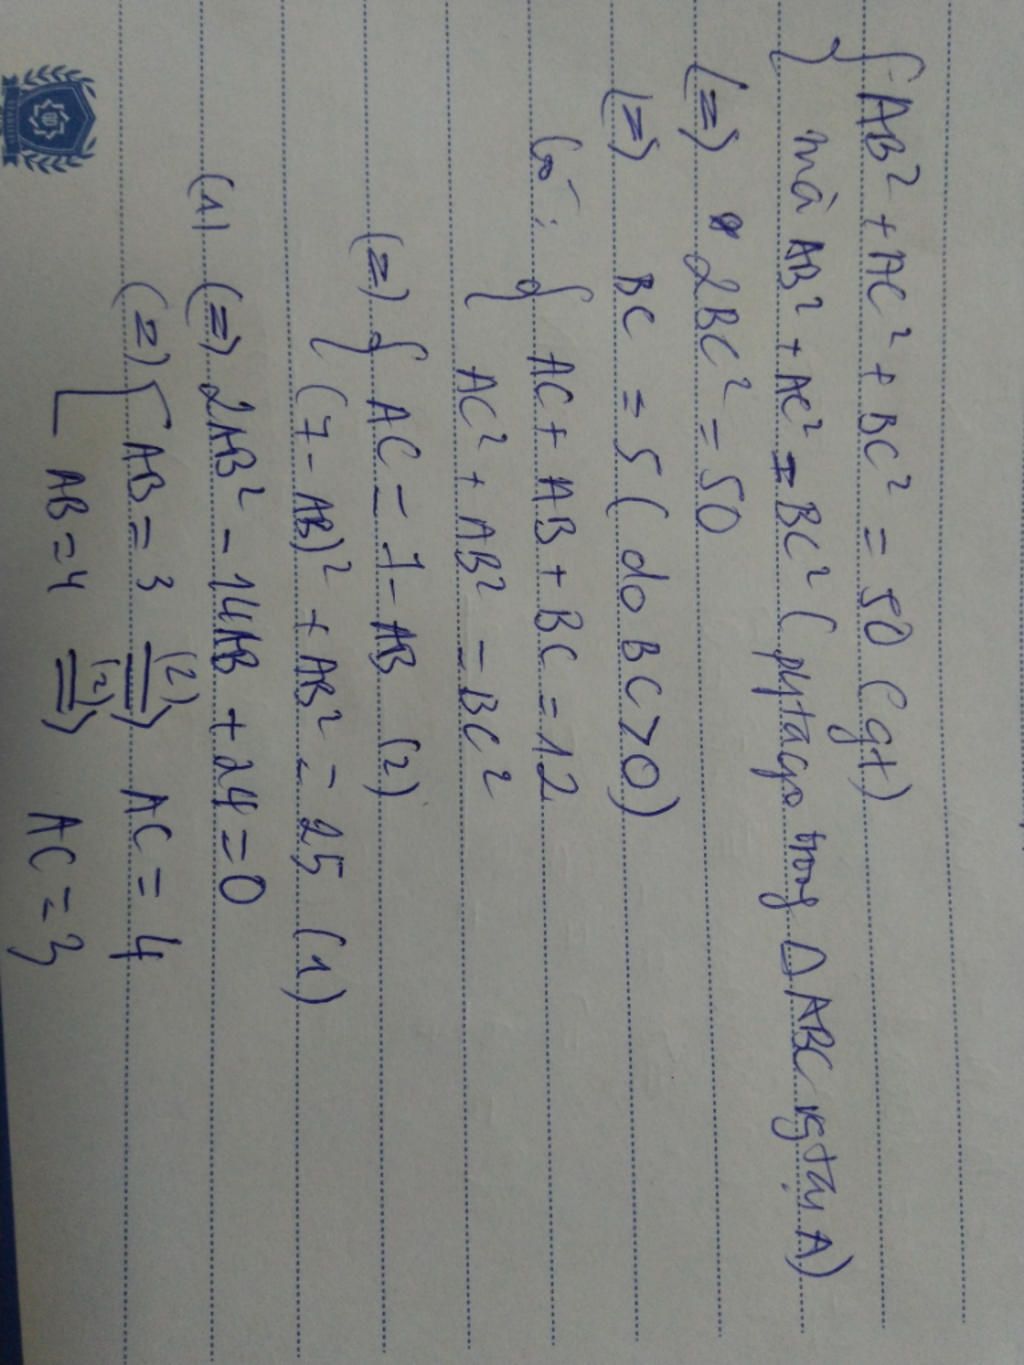 { AB² + AC² + BC² = 50 (gt)
mà AB² + AC² = BC² (pytago trong Δ ABC vg tại A)
(=) 2BC² = 50
(=) BC = 5 (do BC > 0)
Có: { AC + AB + BC = 12
AC² + AB² = BC²
(=) { AC = 7 - AB (2)
(7 - AB)² + AB² = 25 (1)
(1) (=) 2AB² - 14AB + 24 = 0
(=) [ AB = 3 (2) => AC = 4
AB = 4 (2) => AC = 3